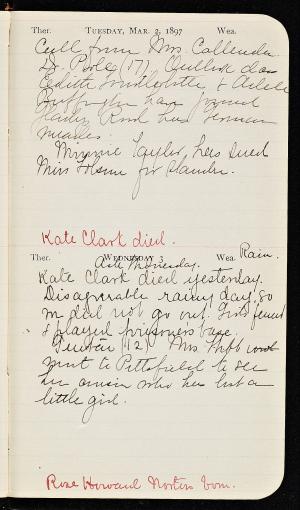 Ther. TUESDAY, MAR. 2, 1897 Wea.
Call from Mrs. Callender.
Dr. (17),
Edith &
have joined
Rood has German
measles.
Minnie Taylor has sued
Miss Folsom for slander.
Kate Clark died.
Ther. WEDNESDAY 3 Wea. Rain.
Ash Wednesday.
Kate Clark died yesterday.
Disagreable rainy day so
we did not go out. Girls fenced
& played prisoners base.
(12) Mrs.
went to Pittsfield to see
her cousin who has lost a
little girl.
Rose Howard Norton born.